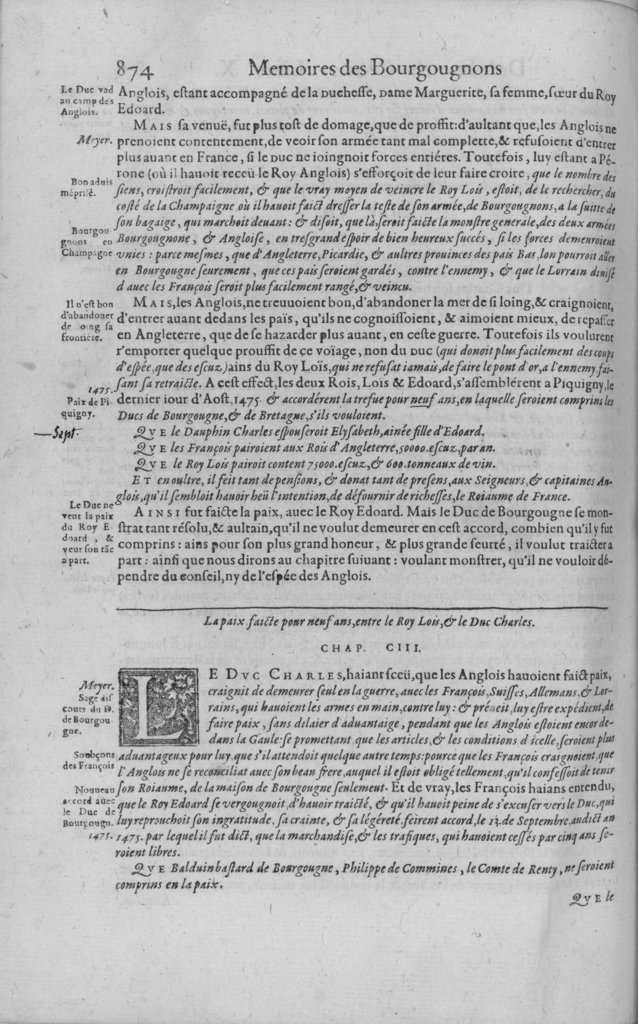 874 Memoires des Bourgougnons
Le Duc vad
au camp des
Anglois.
Anglois, estant accompagné de la Duchesse, Dame Marguerite, sa femme, sœur du Roy
Edoard.
MAIS sa venuë, fut plus tost de domage, que de proffit: d'aultant que, les Anglois ne
Meyer.
prenoient contentement, de veoir son armée tant mal complette, & refusoient d'entrer
plus auant en France, si le Duc ne ioingnoit forces entiéres. Toutefois, luy estant a Pé-
rone (où il hauoit receü le Roy Anglois) s'efforçoit de leur faire croire, que le nombre des
Bon aduis
méprisé.
siens, croistroit facilement, & que le vray moyen de veincre le Roy Lois, estoit, de le rechercher, du
costé de la Champaigne, où il hauoit faict dresser la teste de son armée, de Bourgougnons, a la suitte de
son bagaige, qui marchoit deuant: & disoit, que là, seroit faicte la monstre generale, des deux armées
Bourgou
gnons en
Champagne
Bourgougnone, & Angloise, en tresgrand espoir de bien heureux succés, si les forces demeuroient
vnies: parce mesmes, que d'Angleterre, Picardie, & aultres prouinces des païs Bas, lon pourroit aller
en Bourgougne seurement, que ces païs seroient gardés, contre l'ennemy, & que le Lorrain diuisé
d'auec les François seroit plus facilement rangé, & veincu.
Il n'est bon
d'abandoner
de loing sa
frontiére.
MAIS, les Anglois, ne treuuoient bon, d'abandoner la mer de si loing, & craignoient,
d'entrer auant dedans les païs, qu'ils ne cognoissoient, & aimoient mieux, de repasser
en Angleterre, que de se hazarder plus auant, en ceste guerre. Toutefois ils voulurent
r'emporter quelque prouffit de ce voïage, non du Duc (qui donoit plus facilement des coups
d'espée, que des escuz) ains du Roy Loïs, qui ne refusat iamais, de faire le pont d'or, a l'ennemy fai-
1475.
Paix de Pi-
quigny.
sant sa retraicte. A cest effect, les deux Rois, Lois & Edoard, s'assemblérent a Piquigny, le
dernier iour d'Aost, 1475. & accordérent la trefue pour neuf ans, en laquelle seroient comprins les
Ducs de Bourgougne, & de Bretagne, s'ils vouloient.
Sept.
QVE le Dauphin Charles espouseroit Elysabeth, ainée fille d'Edoard.
QVE les François pairoient aux Rois d'Angleterre, 50000. escuz, par an.
QVE le Roy Lois pairoit content 75000. escuz, & 600. tonneaux de vin.
ET en oultre, il feit tant de pensions, & donat tant de presens, aux Seigneurs, & capitaines An-
glois, qu'il sembloit hauoir heü l'intention, de défournir de richesses, le Roiaume de France.
Le Duc ne
veut la paix
du Roy E
doard, &
veut son fac
a part.
AINSI fut faicte la paix, auec le Roy Edoard. Mais le Duc de Bourgougne se mon-
strat tant résolu, & aultain, qu'il ne voulut demeurer en cest accord, combien qu'il y fut
comprins: ains pour son plus grand honeur, & plus grande seurté, il voulut traicter a
part: ainsi que nous dirons au chapitre suiuant: voulant monstrer, qu'il ne vouloit dé-
pendre du conseil, ny de l'espée des Anglois.
La paix faicte pour neuf ans, entre le Roy Lois, & le Duc Charles.
CHAP. CIII.
Meyer.
Sage dis
cours du D.
de Bourgou-
gne.
LE DVC CHARLES, haiant sceü, que les Anglois hauoient faict paix,
craignit de demeurer seul en la guerre, auec les François, Suisses, Allemans, & Lor-
rains, qui hauoient les armes en main, contre luy: & préueit, luy estre expédient, de
faire paix, sans dilaier d'aduantaige, pendant que les Anglois estoient encor de-
dans la Gaule: se promettant, que les articles, & les conditions d'icelle, seroient plus
Soubçons
des François
aduantageux pour luy, que s'il attendoit quelque autre temps: pource que les François craignoient, que
l'Anglois ne se reconciliat auec son beau frere, auquel il estoit obligé tellement, qu'il confessoit de tenir
son Roiaume, de la maison de Bourgougne seulement. Et de vray, les François haians entendu,
Nouueau
accord auec
le Duc de
Bourgougn.
1475.
que le Roy Edoard se vergougnoit, d'hauoir traicté, & qu'il hauoit peine de s'excuser vers le Duc, qui
luy reprouchoit son ingratitude, sa crainte, & sa légéreté, feirent accord, le 13. de Septembre, audict an
1475. par lequel il fut dict, que la marchandise, & les trafiques, qui hauoient cessés par cinq ans se-
roient libres.
QVE Balduin bastard de Bourgougne, Philippe de Commines, le Comte de Renty, ne seroient
comprins en la paix.
QVE le